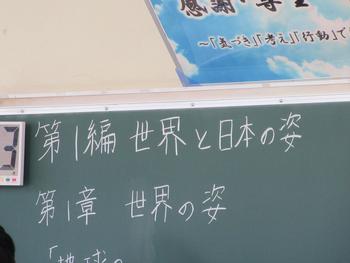 感謝・尊重
～「気づき」「考え」「行動」で
第1編 世界と日本の姿
第1章 世界の姿
「地球の